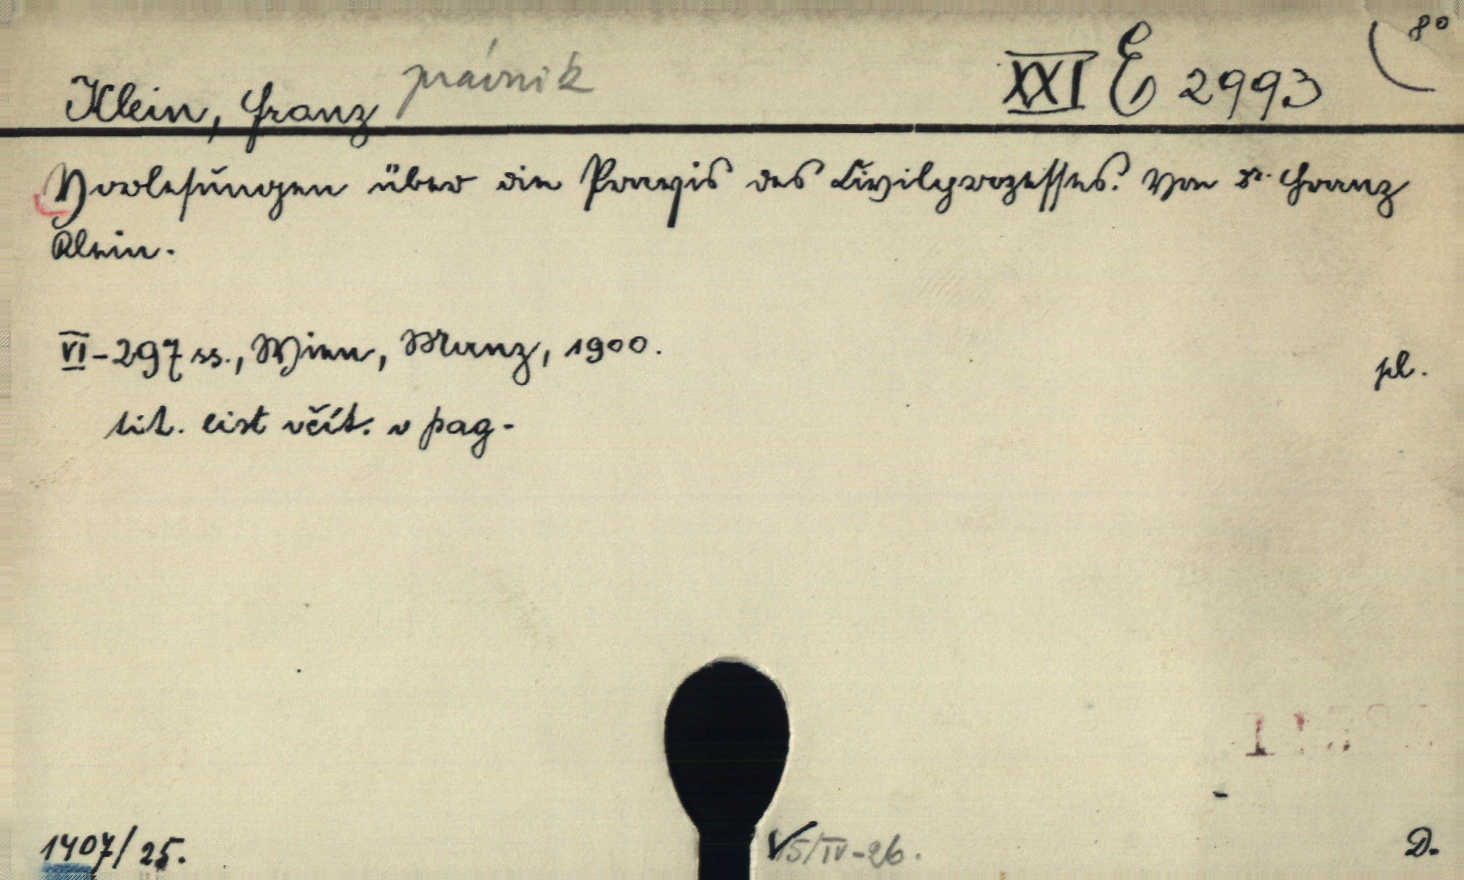 Klein, Franz právnik XXI E 2993 8°
Vorlesungen über die Praxis des Civilprozesses. Von Dr. Franz
Klein.
VI-297 ss., Wien, Manz, 1900.
pl.
tit. list včít. v pag.
1407/25.
5/IV-26.
D.